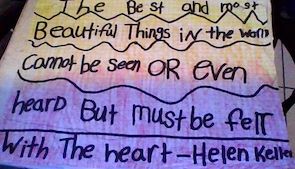 The Best and most
Beautiful Things iN the World
Cannot be seen OR even
heard But must be felt
With The heart - Helen Keller